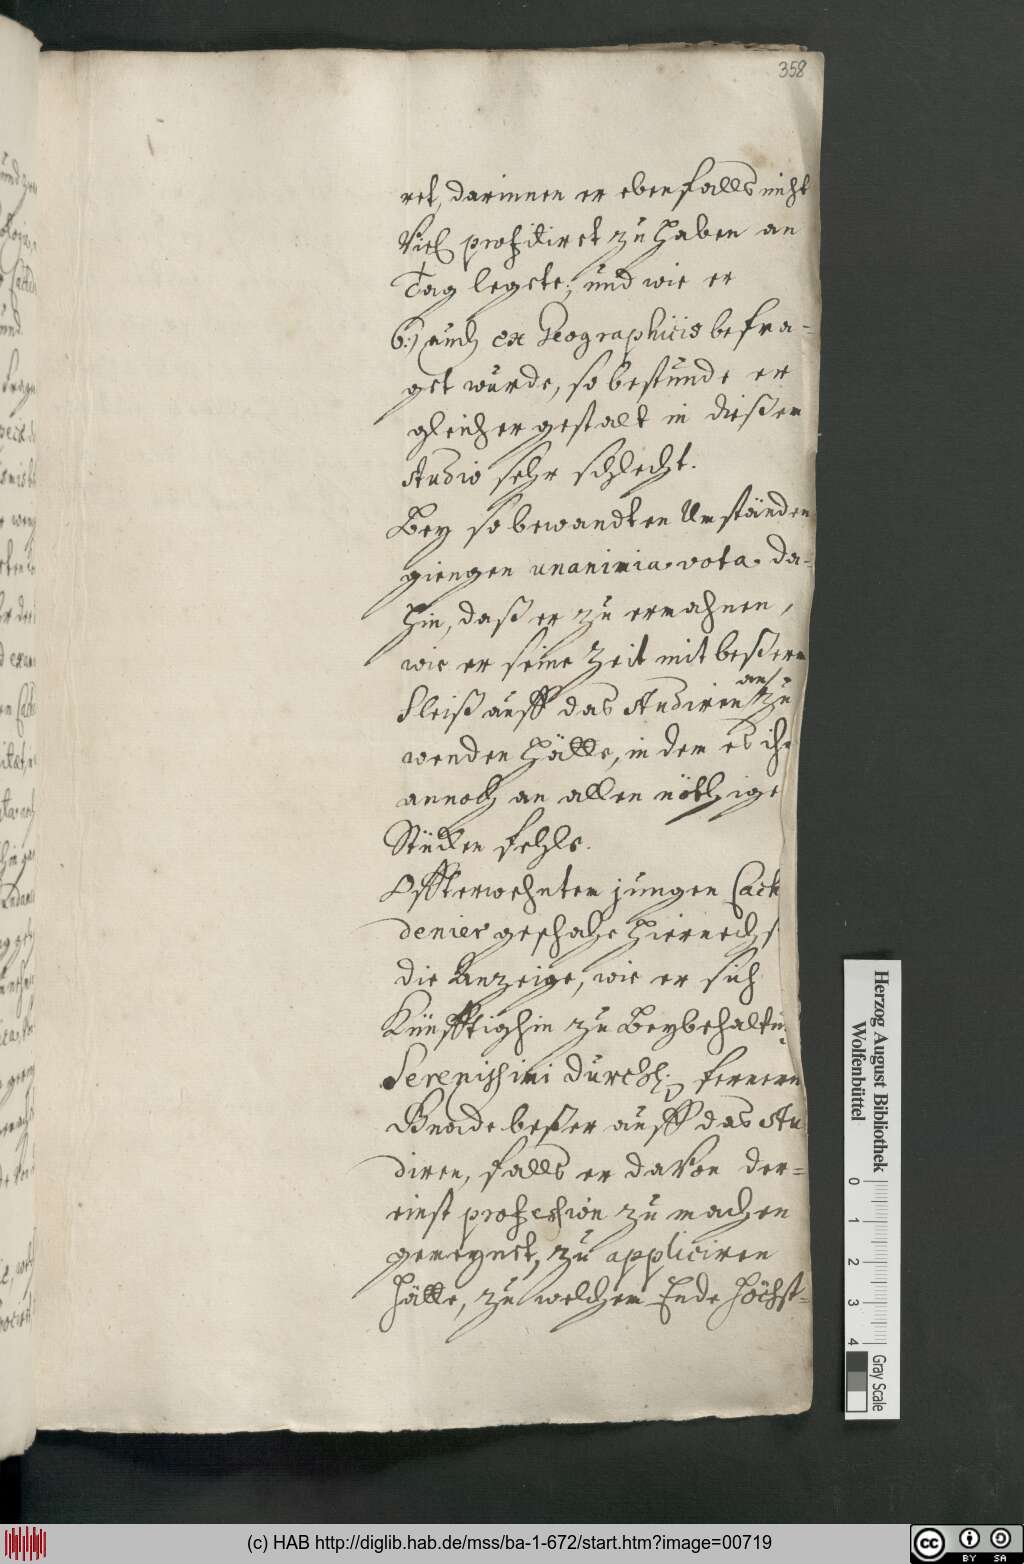 358
ret, darinnen er ebenfalls nicht
Viel profitiret zu haben an
Tag legete; und wie er
6.) auch ex Geographicis befra-
get wurde, so bestunde er
gleicher gestalt in dießem
Studio sehr schlecht.
Bey so bewandten Umständen
giengen unanimia vota da-
hin, daß er zu ermahnen,
wie er seine Zeit mit beßerm
an/
Fleiß auff das Studiren zu
wenden hätte, in dem es ih
annoch an allen nöthige
Stücken fehle.
Offterwehntem jungen
denier geschahe hiernechs
die Anzeige, wie er sich
Künfftighin zu Beybehaltu
Serenissimi Durchl. fernern
Gnade beßer auff das Stu
diren, falls er davon der-
einst profession zu machen
gemeynet, zu appliciren
hätte, zu welchem Ende Höchst-
Herzog August Bibliothek
Wolfenbüttel
0 1 2 3 4
Gray Scale
(c) HAB http://diglib.hab.de/mss/ba-1-672/start.htm?image=00719
cc BY SA